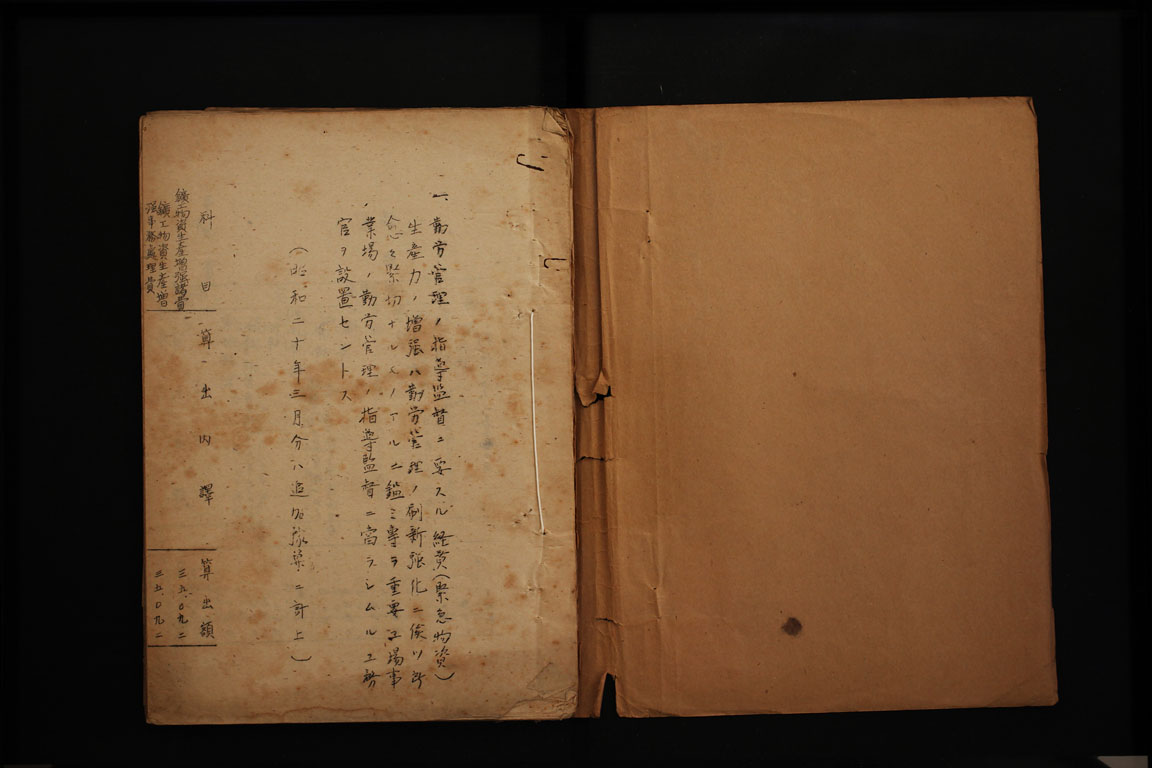 一、勤労管理ノ指導監督ニ要スル経費(緊急物資)
生産力ノ増強ハ勤労管理ノ刷新強化ニ俟ツ所
愈々緊切ナルモノアルニ鑑ミ専ラ重要工場事
業場ノ勤労管理ノ指導監督ニ当ラシムル工務
官ヲ設置セントス
(昭和二十年三月分ハ追加予算ニ計上)
科目 算出内譯 算出額
鑛工物資生産増強諸費 三五、〇九二
鑛工物資生産増
強事務處理費 三五、〇九二